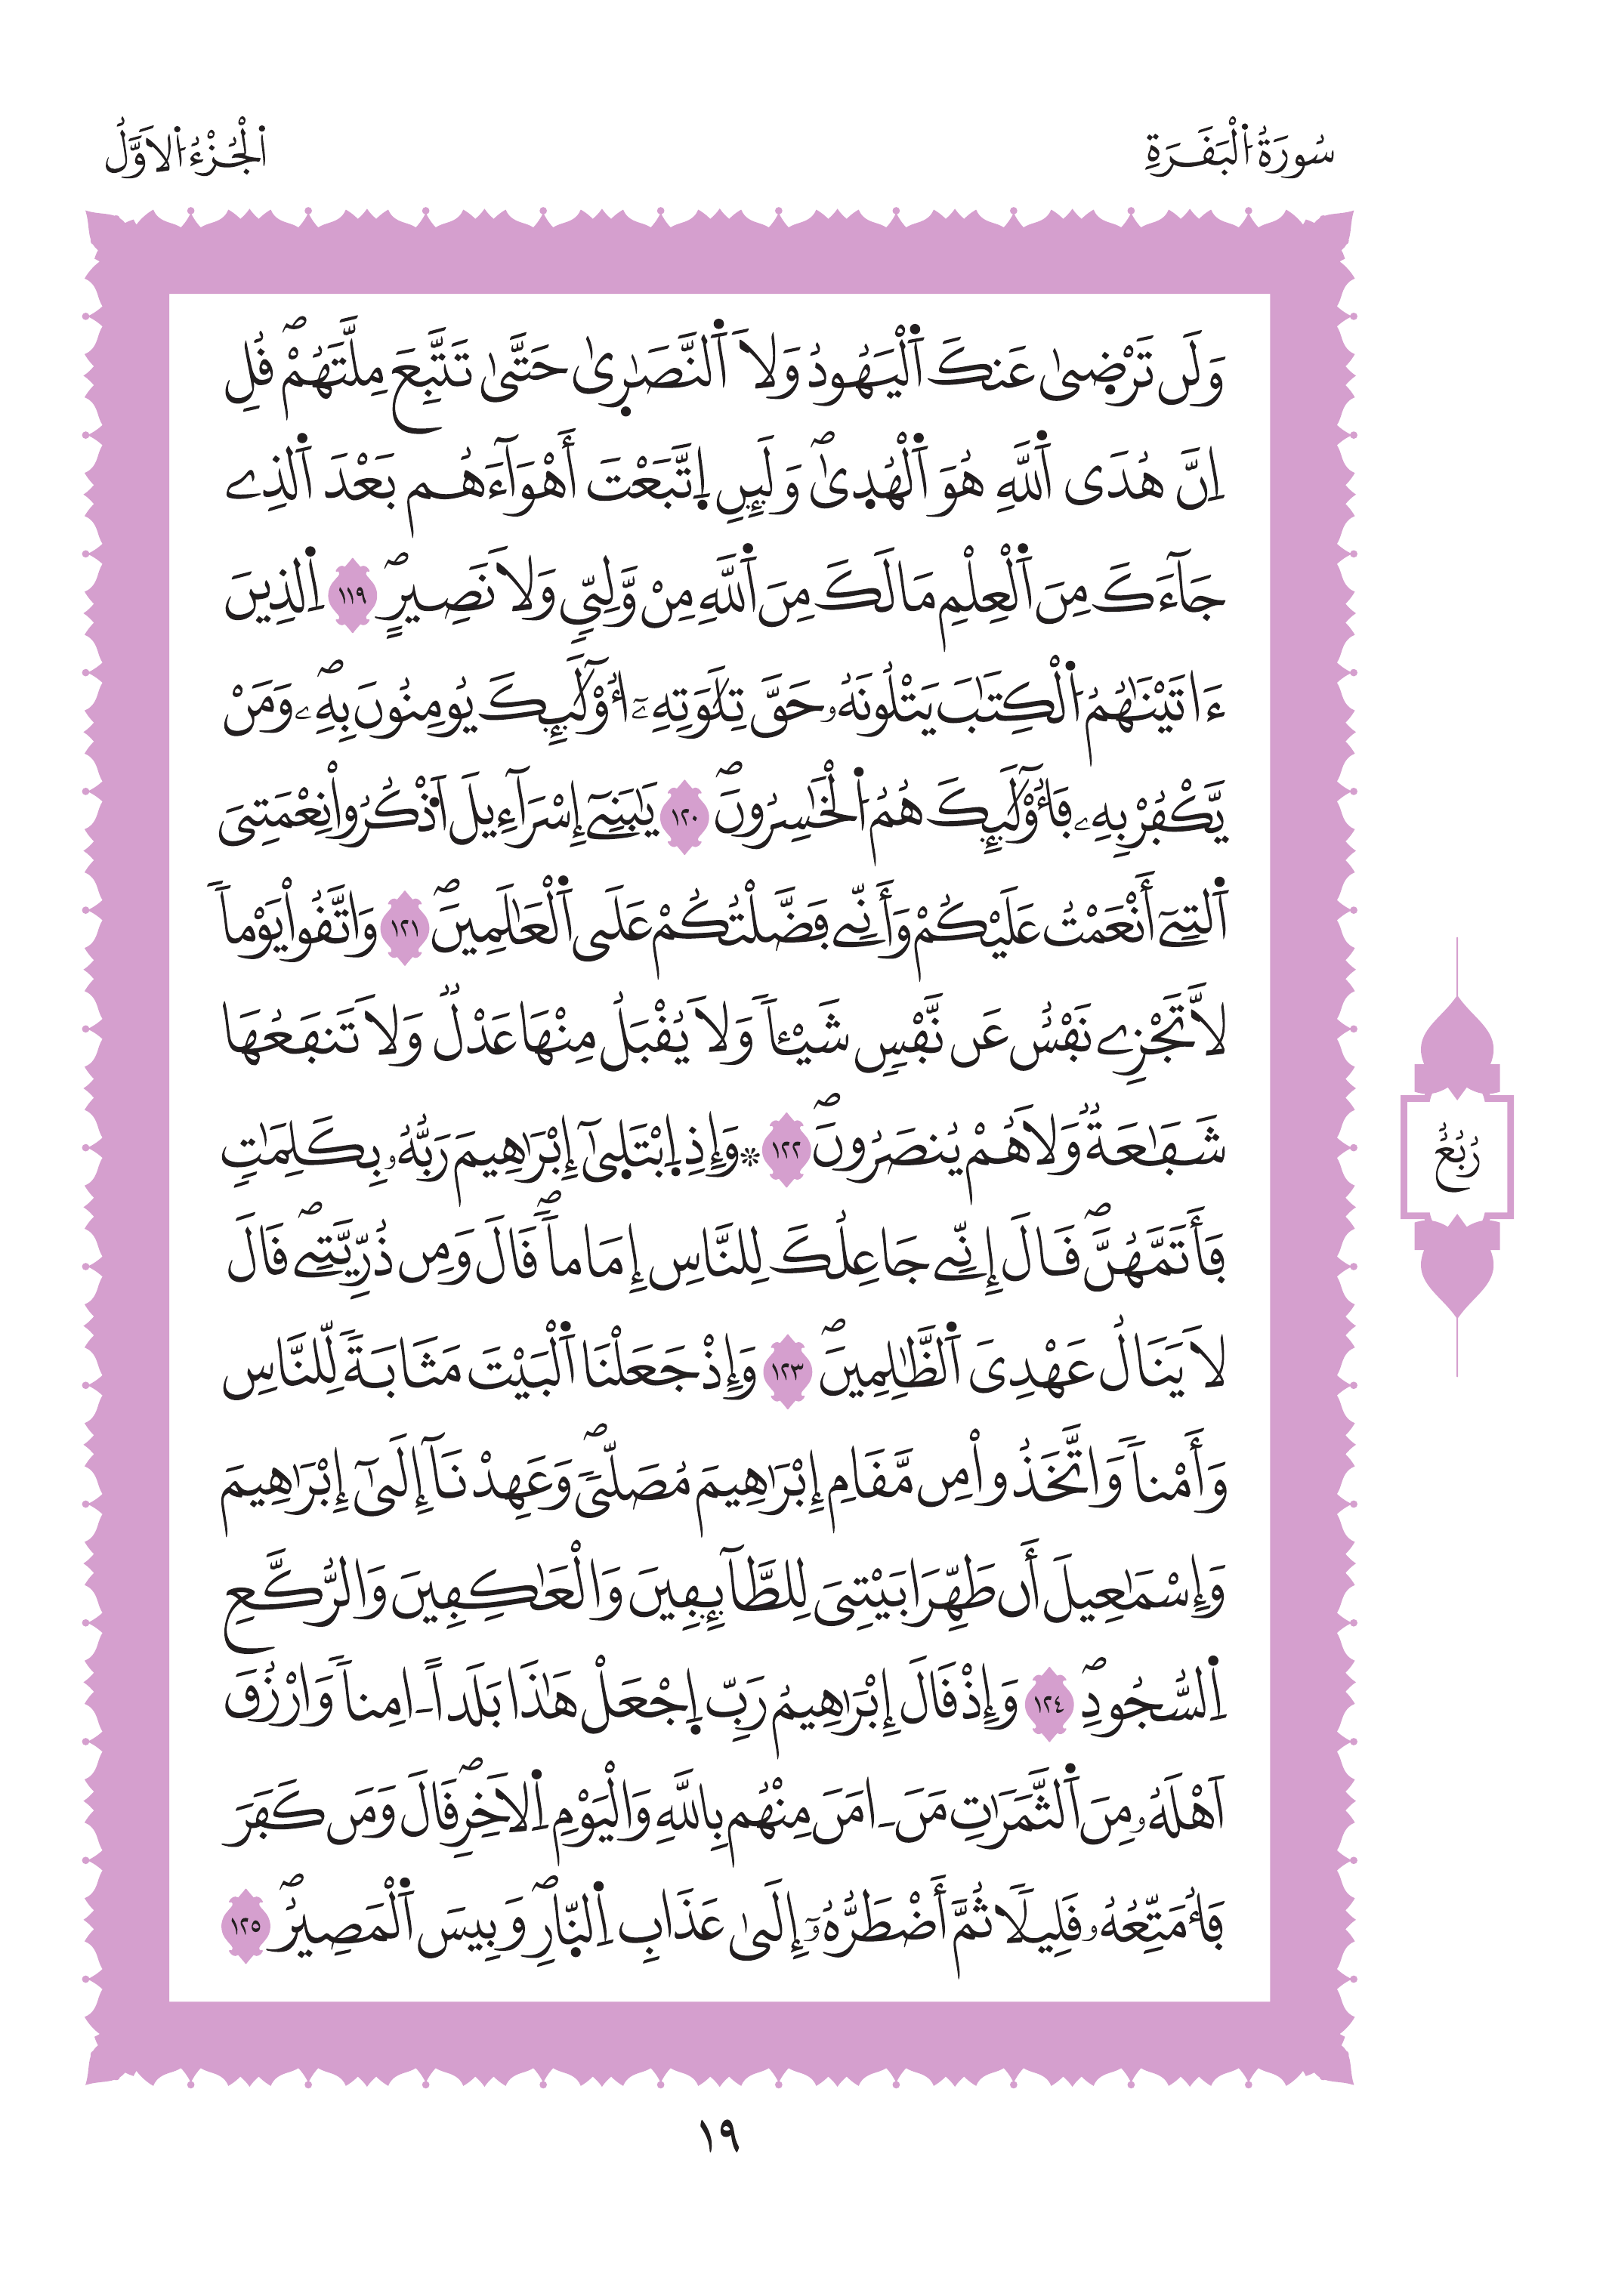 سُورَةُ اُ۬لْبَقَرَةِ
اَ۬لْجُزْءُ اُ۬لَاوَّلُ
وَلَن تَرْض۪ىٰ عَنكَ اَ۬لْيَهُودُ وَلَا اَ۬لنَّصَٰر۪ىٰ حَتَّىٰ تَتَّبِعَ مِلَّتَهُمْۖ قُلِ
اِنَّ هُدَى اَ۬للَّهِ هُوَ اَ۬لْهُد۪ىٰۖ وَلَئِنِ اِ۪تَّبَعْتَ أَهْوَآءَهُم بَعْدَ اَ۬لذِے
جَآءَكَ مِنَ اَ۬لْعِلْمِ مَا لَكَ مِنَ اَ۬للَّهِ مِنْ وَّلِيّٖ وَلَا نَصِيرٍۖ ١١٩ اِ۬لذِينَ
ءَاتَيْنَٰهُمُ اُ۬لْكِتَٰبَ يَتْلُونَهُۥ حَقَّ تِلَٰوَتِهِۦٓ أُوْلَٰٓئِكَ يُومِنُونَ بِهِۦۖ وَمَنْ
يَّكْفُرْ بِهِۦ فَأُوْلَٰٓئِكَ هُمُ اُ۬لْخَٰسِرُونَۖ ١٢٠ يَٰبَنِےٓ إِسْرَآءِيلَ اَ۟ذْكُرُواْ نِعْمَتِيَ
اَ۬لتِےٓ أَنْعَمْتُ عَلَيْكُمْ وَأَنِّے فَضَّلْتُكُمْ عَلَى اَ۬لْعَٰلَمِينَۖ ١٢١ وَاتَّقُواْ يَوْماٗ
لَّا تَجْزِے نَفْسٌ عَن نَّفْسٖ شَيْـٔاٗ وَلَا يُقْبَلُ مِنْهَا عَدْلٞ وَلَا تَنفَعُهَا
شَفَٰعَةٞ وَلَا هُمْ يُنصَرُونَۖ ١٢٢ ۞وَإِذِ اِ۪بْتَل۪ىٰٓ إِبْرَٰهِيمَ رَبُّهُۥ بِكَلِمَٰتٖ
فَأَتَمَّهُنَّۖ قَالَ إِنِّے جَاعِلُكَ لِلنَّاسِ إِمَاماٗۖ قَالَ وَمِن ذُرِّيَّتِےۖ قَالَ
لَا يَنَالُ عَهْدِى اَ۬لظَّٰلِمِينَۖ ١٢٣ وَإِذْ جَعَلْنَا اَ۬لْبَيْتَ مَثَابَةٗ لِّلنَّاسِ
وَأَمْناٗ وَاتَّخَذُواْ مِن مَّقَامِ إِبْرَٰهِيمَ مُصَلّيٗۖ وَعَهِدْنَآ إِلَىٰٓ إِبْرَٰهِيمَ
وَإِسْمَٰعِيلَ أَن طَهِّرَا بَيْتِيَ لِلطَّآئِفِينَ وَالْعَٰكِفِينَ وَالرُّكَّعِ
اِ۬لسُّجُودِۖ ١٢٤ وَإِذْ قَالَ إِبْرَٰهِيمُ رَبِّ اِ۪جْعَلْ هَٰذَا بَلَداً ـ امِناٗ وَارْزُقَ
اَهْلَهُۥ مِنَ اَ۬لثَّمَرَٰتِ مَنَ ـ امَنَ مِنْهُم بِاللَّهِ وَالْيَوْمِ اِ۬لَاخِرِۖ قَالَ وَمَن كَفَرَ
فَأُمَتِّعُهُۥ قَلِيلاٗ ثُمَّ أَضْطَرُّهُۥٓ إِلَىٰ عَذَابِ اِ۬لنّ۪ارِۖ وَبِيسَ اَ۬لْمَصِيرُۖ ١٢٥
رُبُعُ
١٩